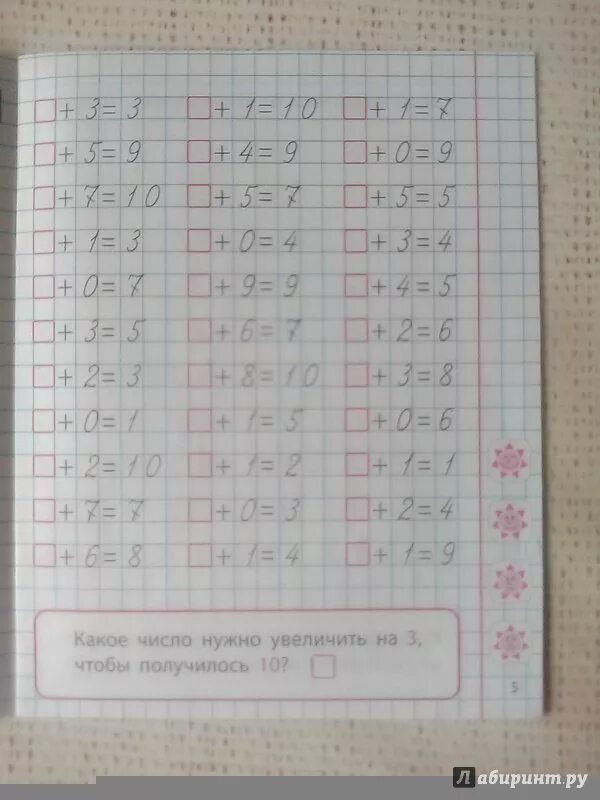 □ + 3 = 3 □ + 1 = 10 □ + 1 = 7
□ + 5 = 9 □ + 4 = 9 □ + 0 = 9
□ + 7 = 10 □ + 5 = 7 □ + 5 = 5
□ + 1 = 3 □ + 0 = 4 □ + 3 = 4
□ + 0 = 7 □ + 9 = 9 □ + 4 = 5
□ + 3 = 5 □ + 6 = 7 □ + 2 = 6
□ + 2 = 3 □ + 8 = 10 □ + 3 = 8
□ + 0 = 1 □ + 1 = 5 □ + 0 = 6
□ + 2 = 10 □ + 1 = 2 □ + 1 = 1
□ + 7 = 7 □ + 0 = 3 □ + 2 = 4
□ + 6 = 8 □ + 1 = 4 □ + 1 = 9
Какое число нужно увеличить на 3,
чтобы получилось 10? □
5
Лабиринт.ру